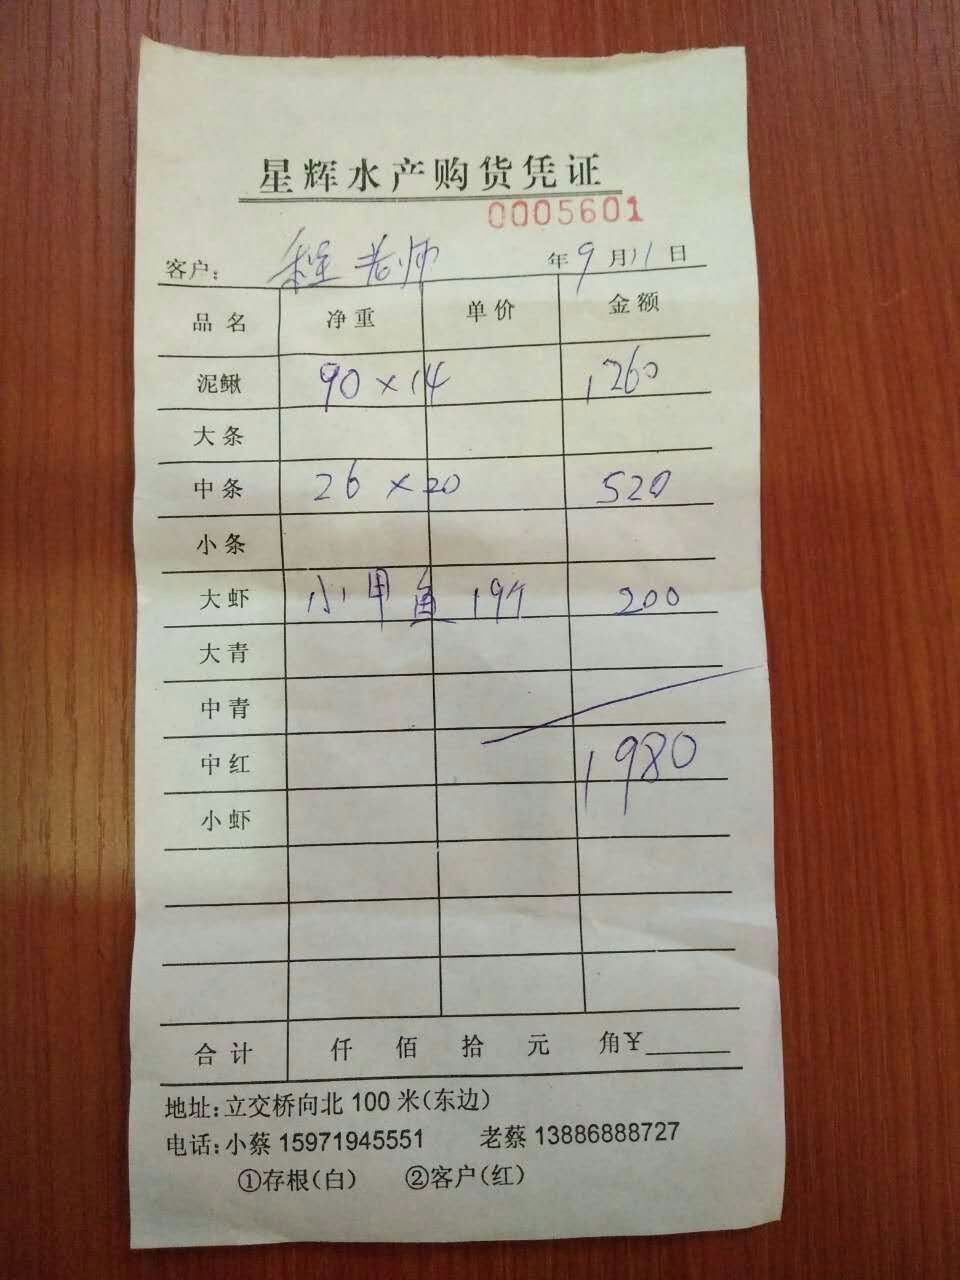 星辉水产购货凭证
0005601
客户: 程老师 年9月11日
品名 净重 单价 金额
泥鳅 90×14 1260
大条
中条 26×20 520
小条
大虾 小甲鱼 19个 200
大青
中青
中红 1980
小虾
合计 仟 佰 拾 元 角¥
地址:立交桥向北100米(东边)
电话:小蔡15971945551 老蔡13886888727
①存根(白) ②客户(红)